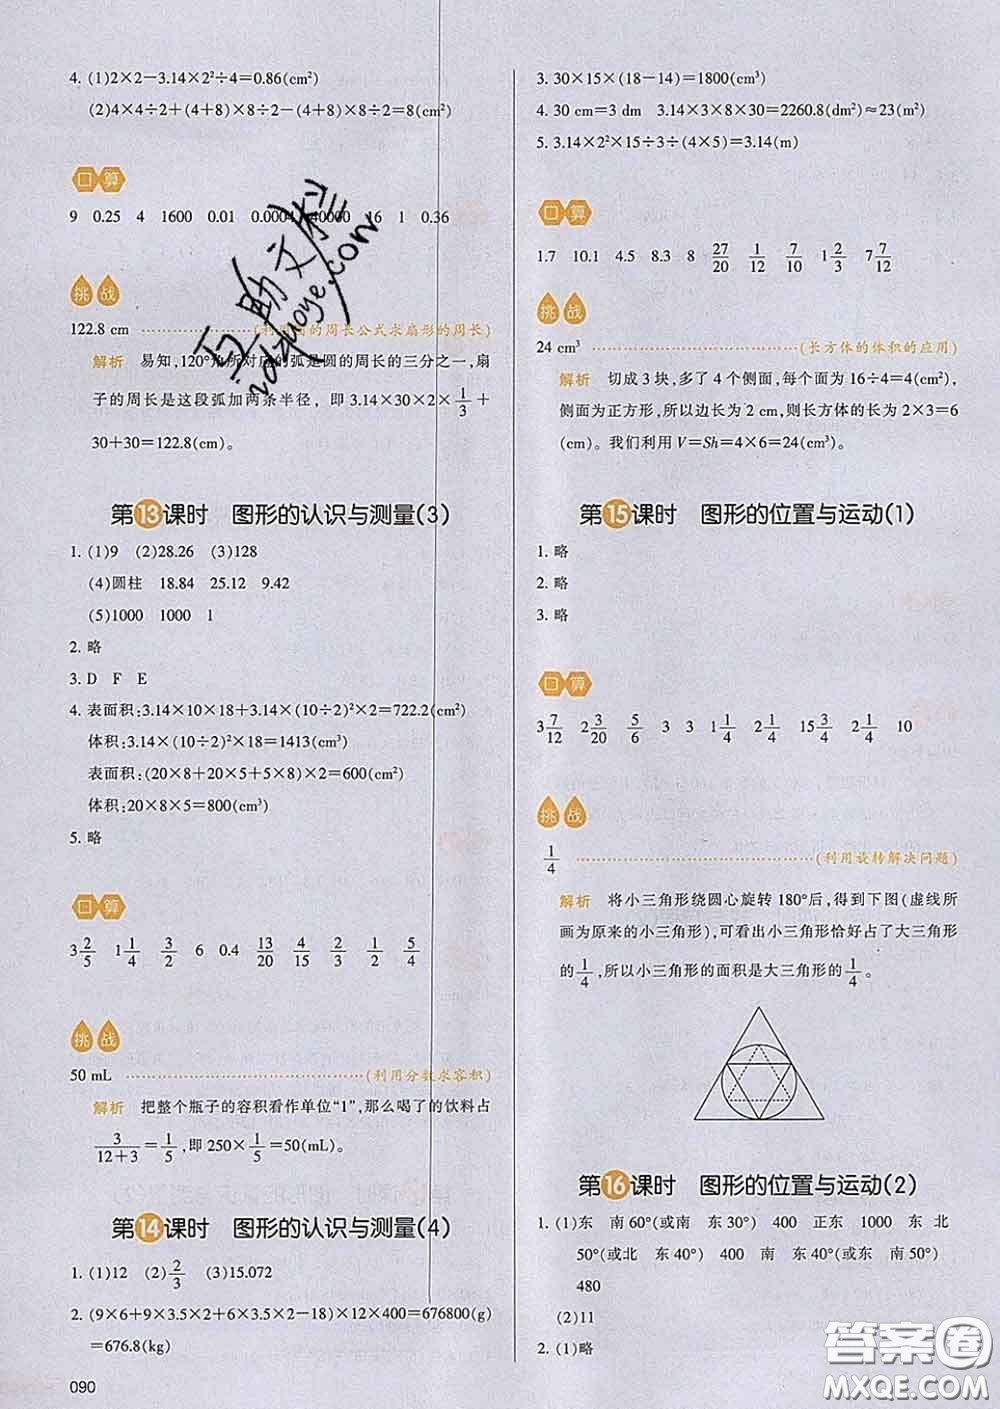 4. (1)2×2－3.14×2²÷4＝0.86(cm²)
(2)4×4÷2＋(4＋8)×8÷2－(4＋8)×8÷2＝8(cm²)
口算
9 0.25 4 1600 0.01 0.0004 40000 16 1 0.36
挑战
122.8 cm (利用圆的周长公式求扇形的周长)
解析 易知，120°角所对应的弧是圆的周长的三分之一，扇
子的周长是这段弧加两条半径，即 3.14×30×2×1/3＋
30＋30＝122.8(cm)。
第13课时 图形的认识与测量(3)
1. (1)9 (2)28.26 (3)128
(4)圆柱 18.84 25.12 9.42
(5)1000 1000 1
2. 略
3. D F E
4. 表面积：3.14×10×18＋3.14×(10÷2)²×2＝722.2(cm²)
体积：3.14×(10÷2)²×18＝1413(cm³)
表面积：(20×8＋20×5＋5×8)×2＝600(cm²)
体积：20×8×5＝800(cm³)
5. 略
口算
3 2/5 1 1/4 3/2 6 0.4 13/20 4/15 2/3 1/2 5/4
挑战
50 mL (利用分数求容积)
解析 把整个瓶子的容积看作单位“1”，那么喝了的饮料占
3/(12＋3)＝1/5，即 250×1/5＝50(mL)。
第14课时 图形的认识与测量(4)
1. (1)12 (2)2/3 (3)15.072
2. (9×6＋9×3.5×2＋6×3.5×2－18)×12×400＝676800(g)
＝676.8(kg)
090
3. 30×15×(18－14)＝1800(cm³)
4. 30 cm＝3 dm 3.14×3×8×30＝2260.8(dm²)≈23(m²)
5. 3.14×2²×15÷3÷(4×5)＝3.14(m)
口算
1.7 10.1 4.5 8.3 8 27/20 1/12 7/10 1 2/3 7 7/12
挑战
24 cm³ (长方体的体积的应用)
解析 切成 3 块，多了 4 个侧面，每个面为 16÷4＝4(cm²)，
侧面为正方形，所以边长为 2 cm，则长方体的长为 2×3＝6
(cm)。我们利用 V＝Sh＝4×6＝24(cm³)。
第15课时 图形的位置与运动(1)
1. 略
2. 略
3. 略
口算
3 7/12 2 3/20 5/6 3 3 1 1/4 2 1/4 15 3/4 2 1/4 10
挑战
1/4 (利用旋转解决问题)
解析 将小三角形绕圆心旋转 180°后，得到下图(虚线所
画为原来的小三角形)，可看出小三角形恰好占了大三角形
的1/4，所以小三角形的面积是大三角形的1/4。
第16课时 图形的位置与运动(2)
1. (1)东 南 60°(或南 东 30°) 400 正东 1000 东 北
50°(或北 东 40°) 400 南 东 40°(或东 南 50°)
480
(2)11
2. (1)略
互助文栏
idzuoye.com
答案圈
MXQE.COM